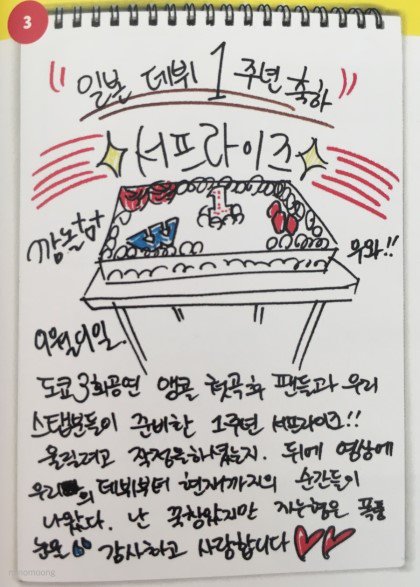 3
"일본 데뷔 1 주년 축하"
서프라이즈
깜놀함
우와!!
9월 9일.
도쿄 3회공연 앵콜 첫곡후 팬들과 우리
스탭분들이 준비한 1주년 서프라이즈!!
울릴려고 작정을하셨는지. 뒤에 영상에
우리 의 데뷔부터 현재까지의 순간들이
나왔다. 난 꾹참았지만 지능형은 폭풍
눈물 감사하고 사랑합니다